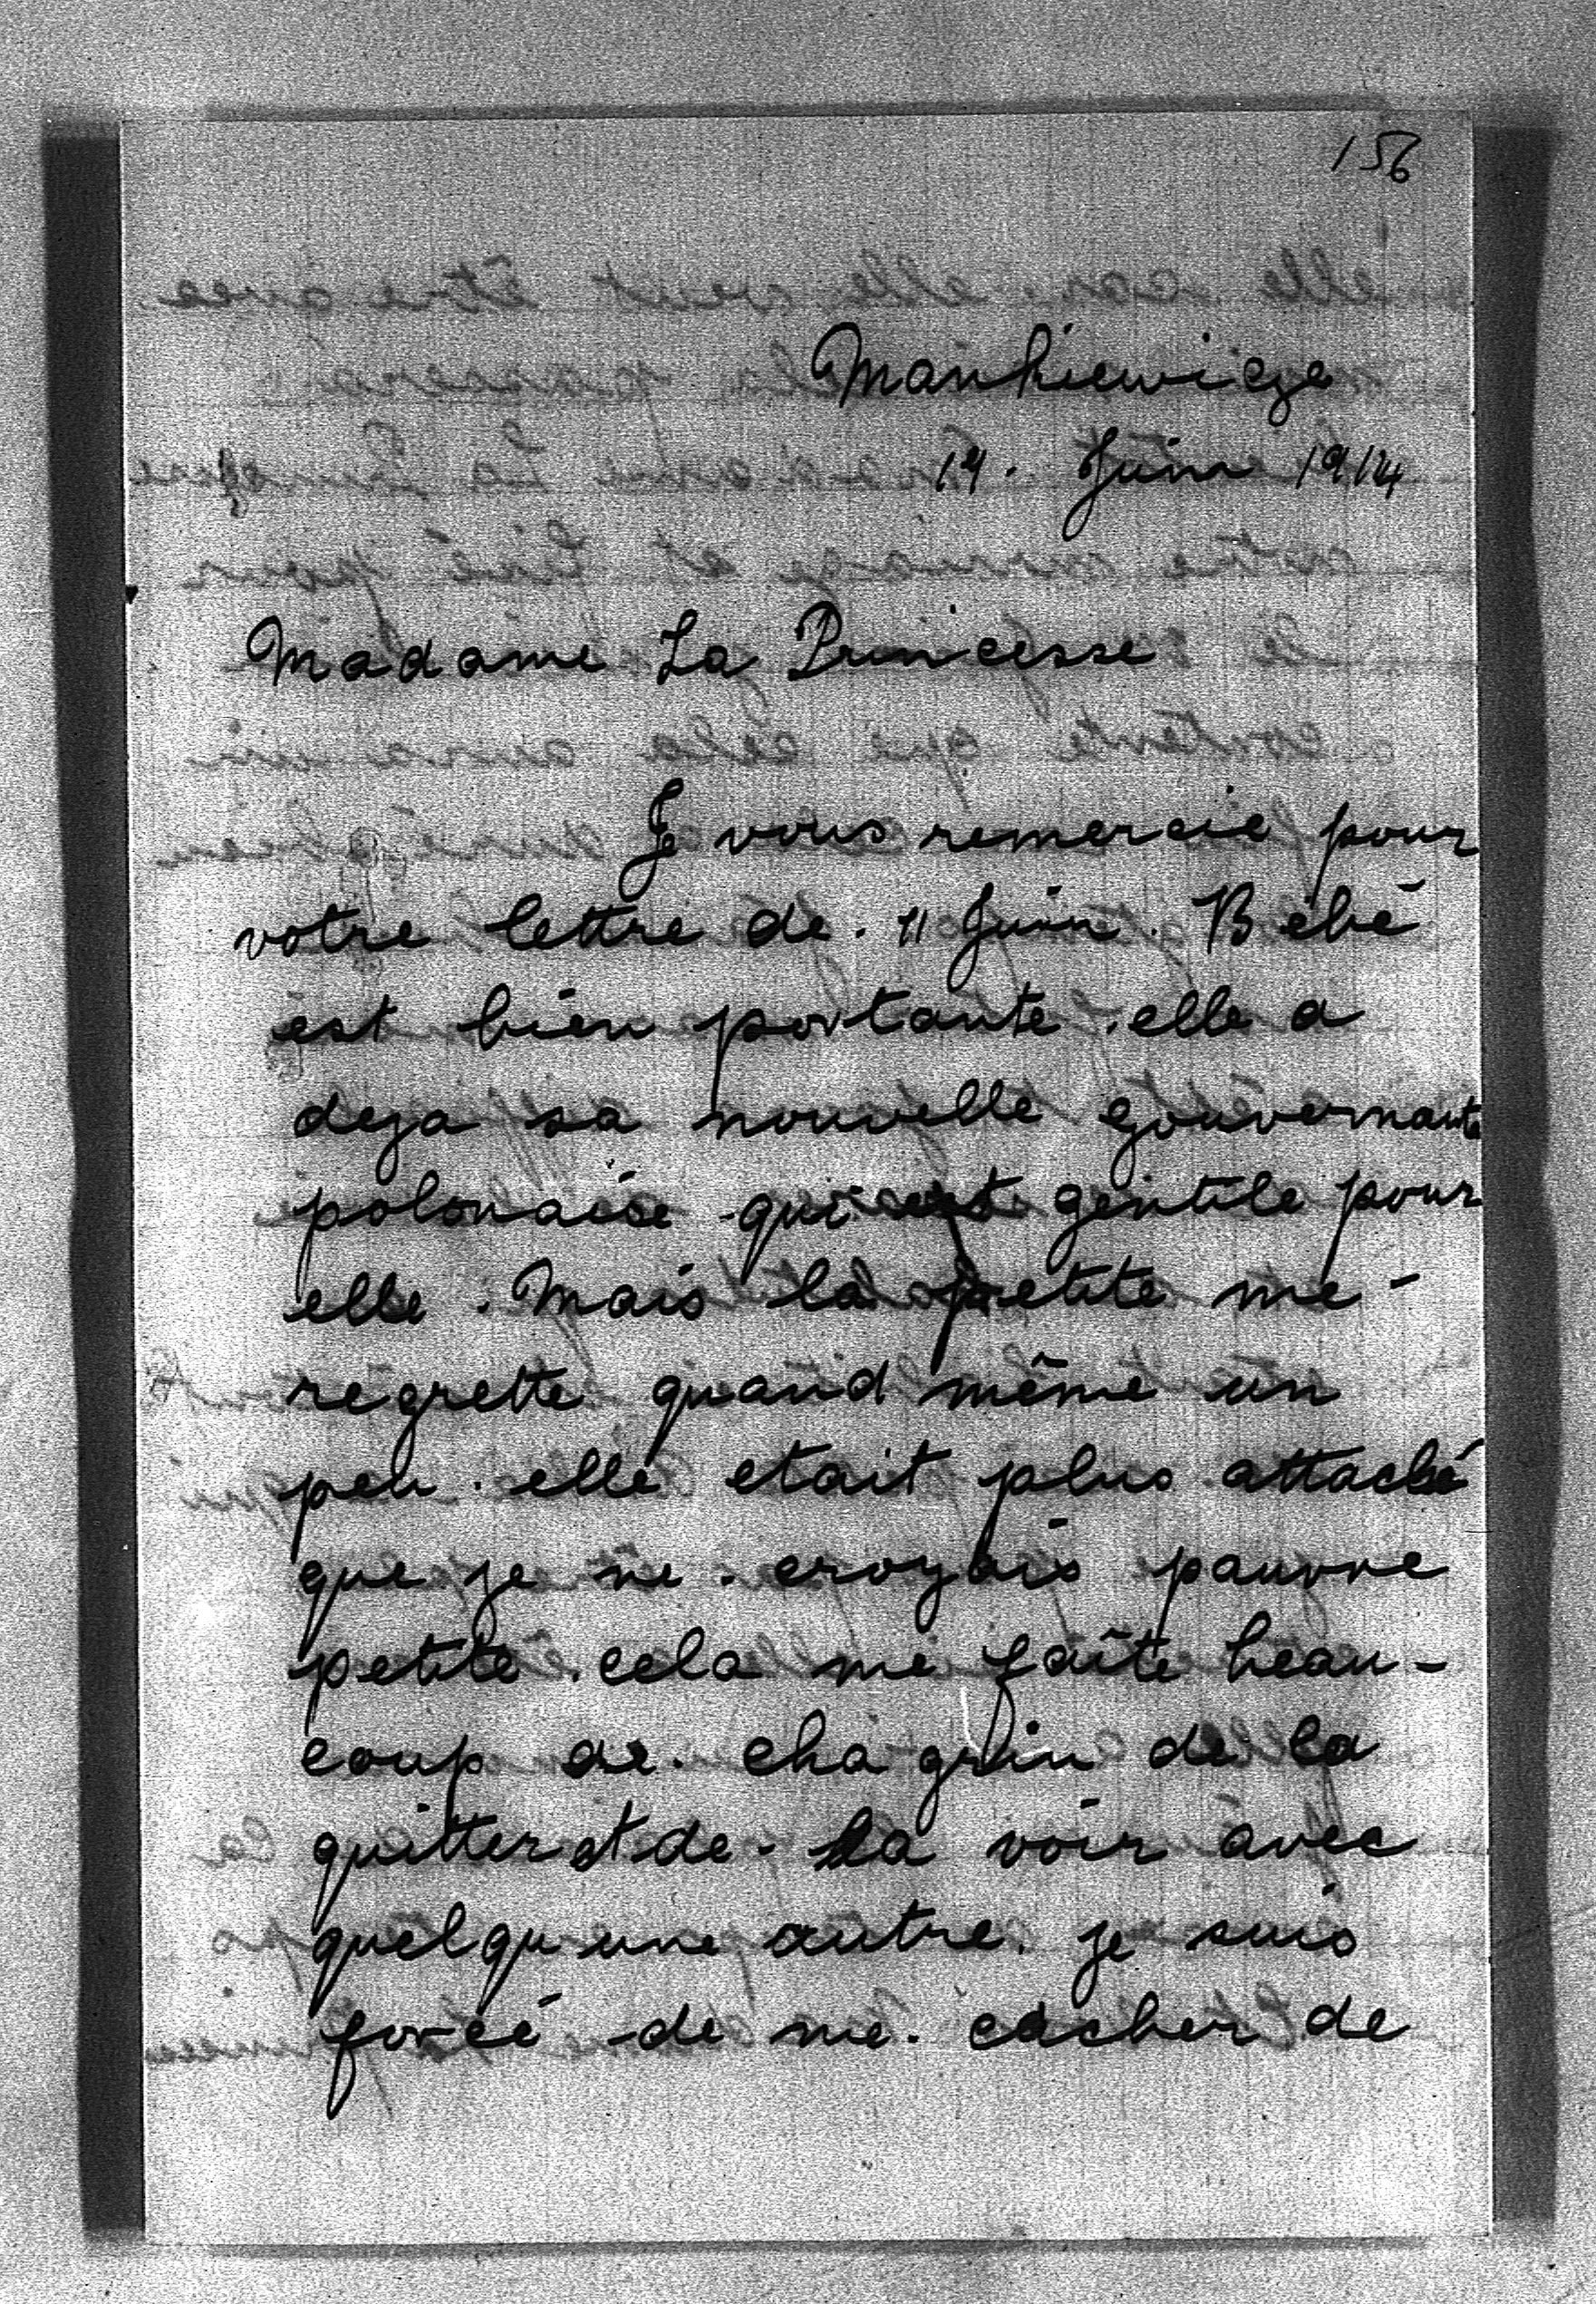 156
Mankiewicze
19. Juin 1914
Madame La Princesse
Je vous remercie pour
votre lettre de. 11 Juin. Bébé
est bien portante. elle a
deja sa nouvelle gouvernante
polonaise qui est gentile pour
elle. Mais la petite me-
regrette quand même un
peu. elle etait plus attaché
que je ne. croyais pauvre
petite. cela me faîte beau-
coup de. chagrin de la
quitter et de. la voir avec
quelqu une autre. je suis
forcé de me. cacher de